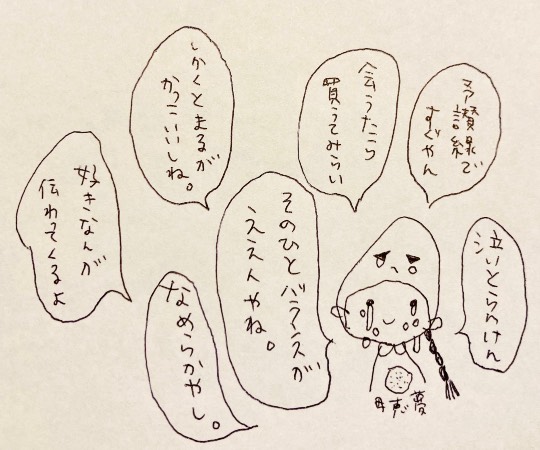 予讃線で
すぐやん
会うたら
買うてみらい
しかくとまるが
かっこいいしね。
好きなんが
伝わってくるよ
泣いとらんけん
そのひとバランスが
ええんやね。
なめらかやし。
母恵夢